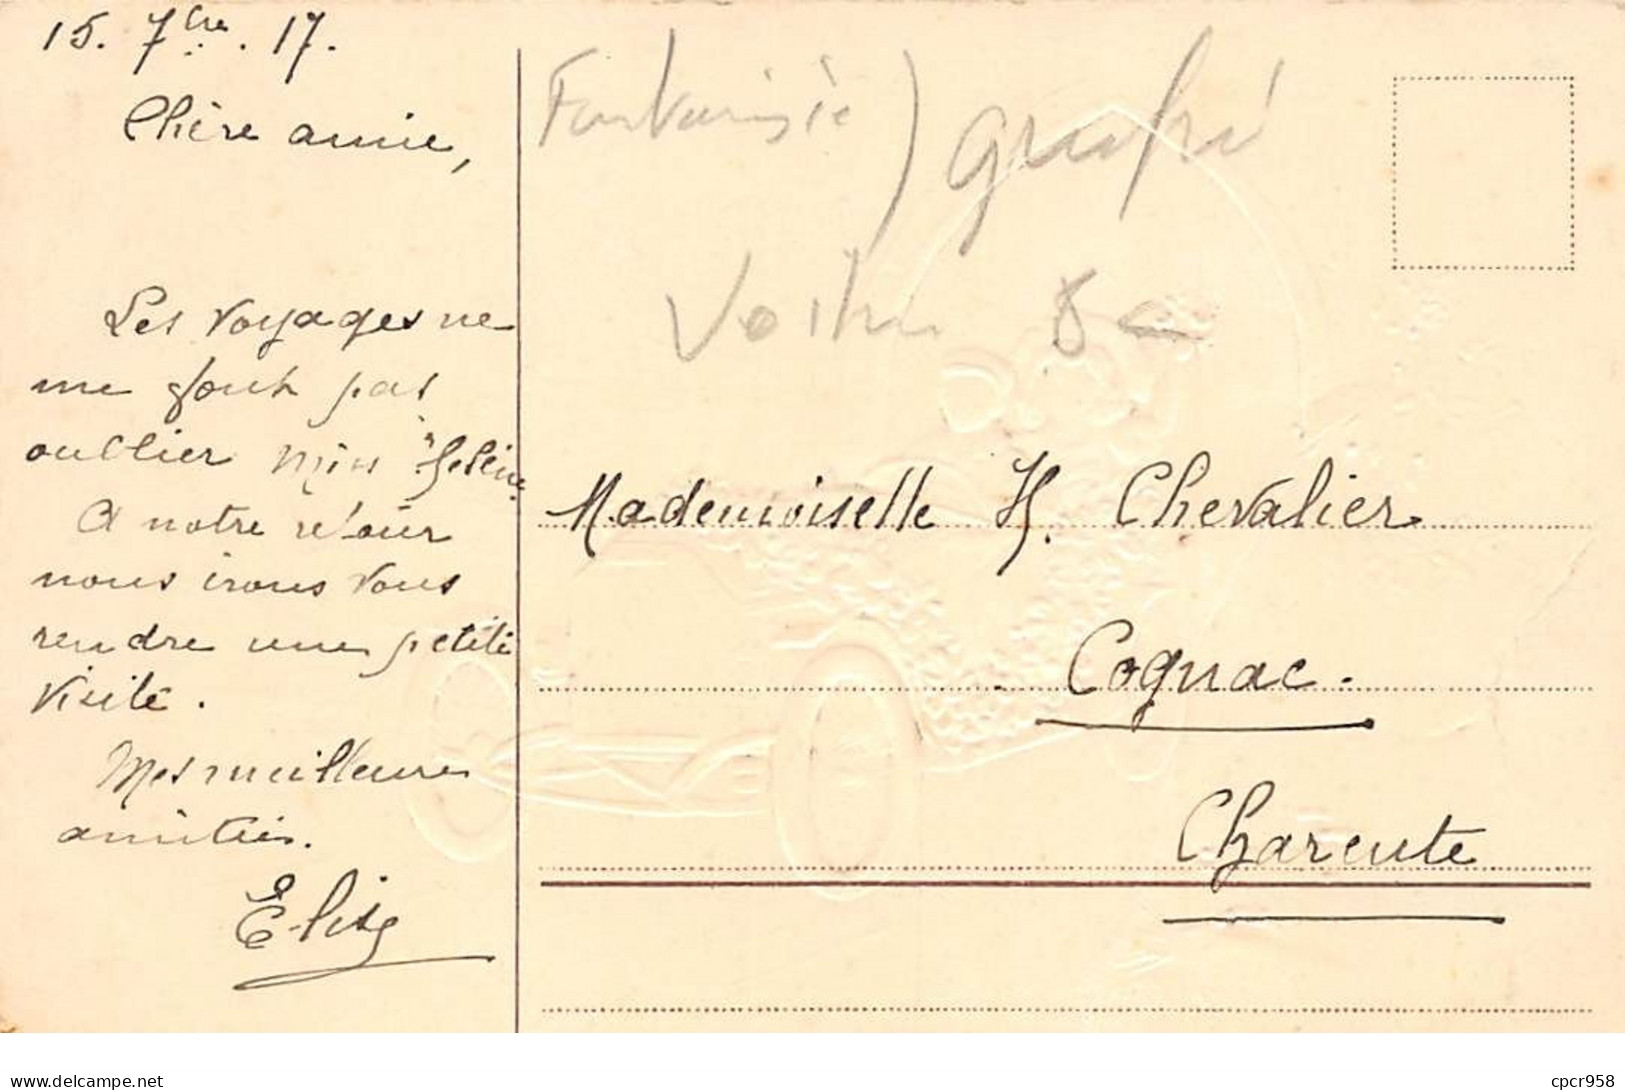 15. 7bre. 17.
Chère amie,
Les voyages ne
me font pas
oublier Miss Hélène.
A notre retour
nous irons vous
rendre une petite
visite.
Mes meilleures
amitiés.
Elise
Fantaisie) gaufré
Voiture 8€
Mademoiselle H. Chevalier
Cognac.
Charente
delcampe.net
cpcr958